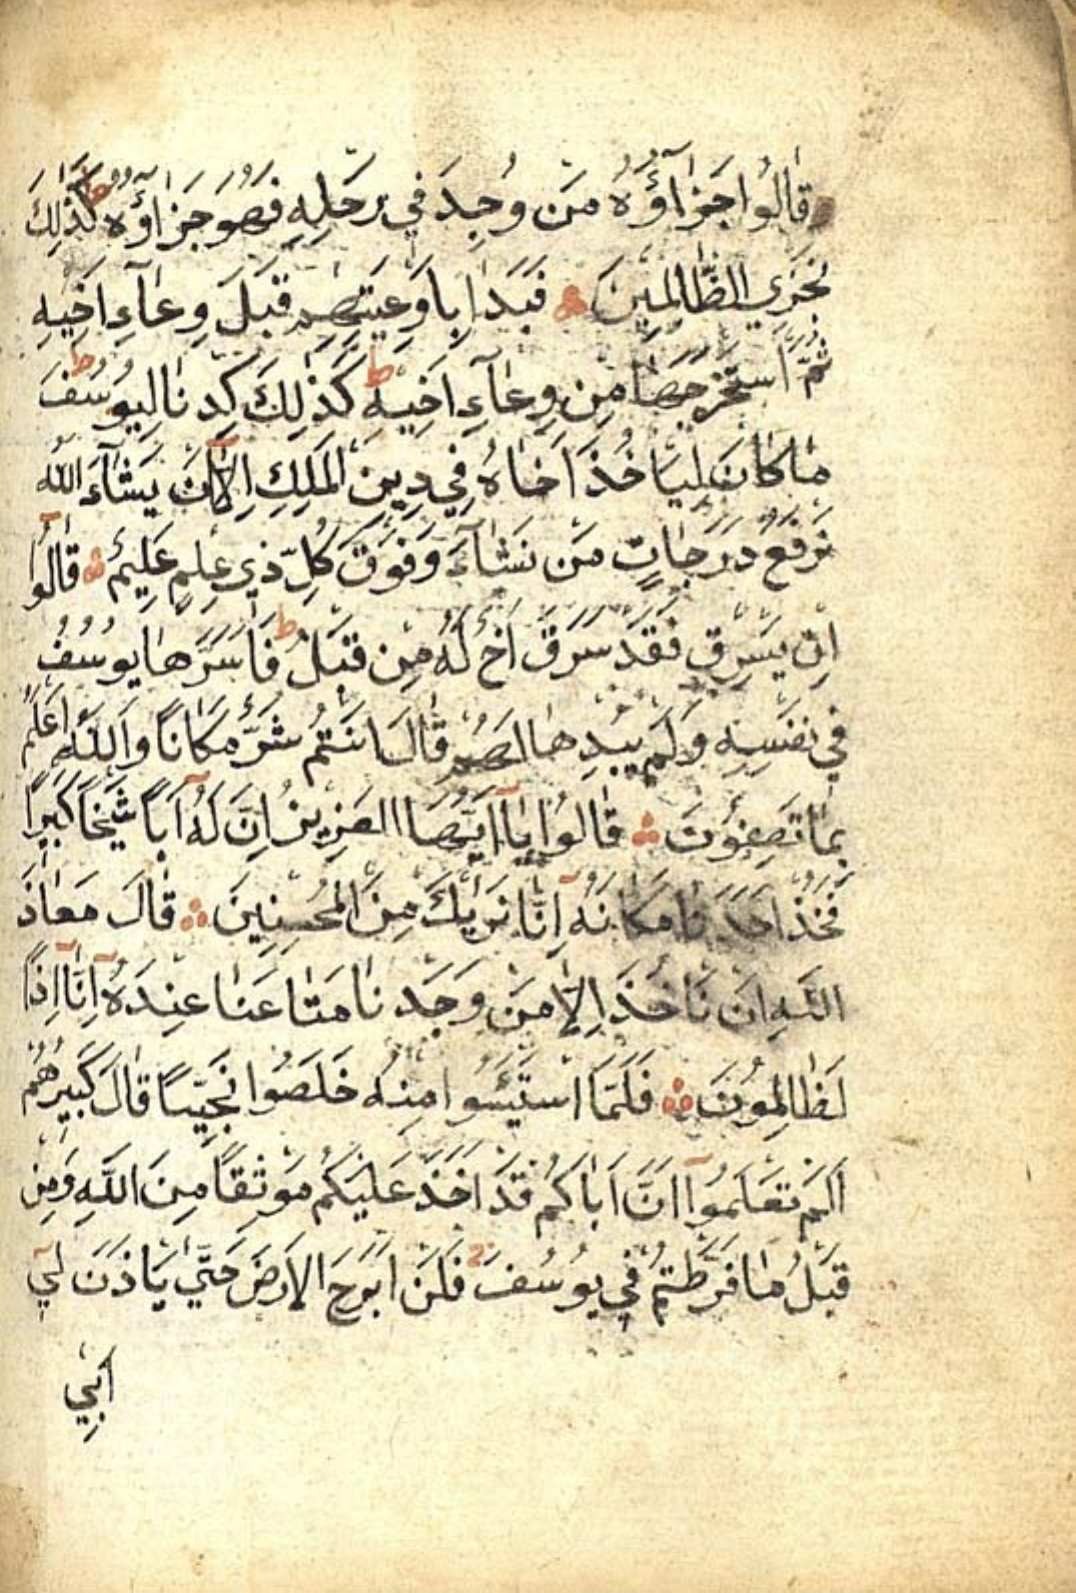 قَالُوا جَزَاؤُهُ مَن وُجِدَ فِي رَحْلِهِ فَهُوَ جَزَاؤُهُ ط كَذَلِكَ
نَجْزِي الظَّالِمِينَ فَبَدَا بِاَوْعِيَتِهِمْ قَبْلَ وِعَاءِ اَخِيهِ
ثُمَّ اسْتَخْرَجَهَا مِن وِعَاءِ اَخِيهِ ط كَذَلِكَ كِدْنَا لِيُوسُفَ ط
مَا كَانَ لِيَاخُذَ اَخَاهُ فِي دِينِ الْمَلِكِ اِلَّا اَنْ يَشَاءَ اللّٰهُ
نَرْفَعُ دَرَجَاتٍ مَن نَشَاءُ وَفَوْقَ كُلِّ ذِي عِلْمٍ عَلِيمٌ قَالُوا
اِنْ يَسْرِقْ فَقَدْ سَرَقَ اَخٌ لَهُ مِن قَبْلُ ط فَاَسَرَّهَا يُوسُفُ
فِي نَفْسِهِ وَلَمْ يُبْدِهَا لَهُمْ قَالَ اَنْتُمْ شَرٌّ مَكَانًا وَاللّٰهُ اَعْلَمُ
بِمَا تَصِفُونَ قَالُوا يَا اَيُّهَا الْعَزِيزُ اِنَّ لَهُ اَبًا شَيْخًا كَبِيرًا
فَخُذْ اَحَدَنَا مَكَانَهُ اِنَّا نَرٰيكَ مِنَ الْمُحْسِنِينَ قَالَ مَعَاذَ
اللّٰهِ اَنْ نَاخُذَ اِلَّا مَنْ وَجَدْنَا مَتَاعَنَا عِنْدَهُ اِنَّا اِذًا
لَظَالِمُونَ فَلَمَّا اسْتَيْئَسُوا مِنْهُ خَلَصُوا نَجِيًّا قَالَ كَبِيرُهُمْ
اَلَمْ تَعْلَمُوا اَنَّ اَبَاكُمْ قَدْ اَخَذَ عَلَيْكُمْ مَوْثِقًا مِنَ اللّٰهِ وَمِن
قَبْلُ مَا فَرَّطْتُمْ فِي يُوسُفَ فَلَنْ اَبْرَحَ الْاَرْضَ حَتَّى يَاذَنَ لِي
اَبِي